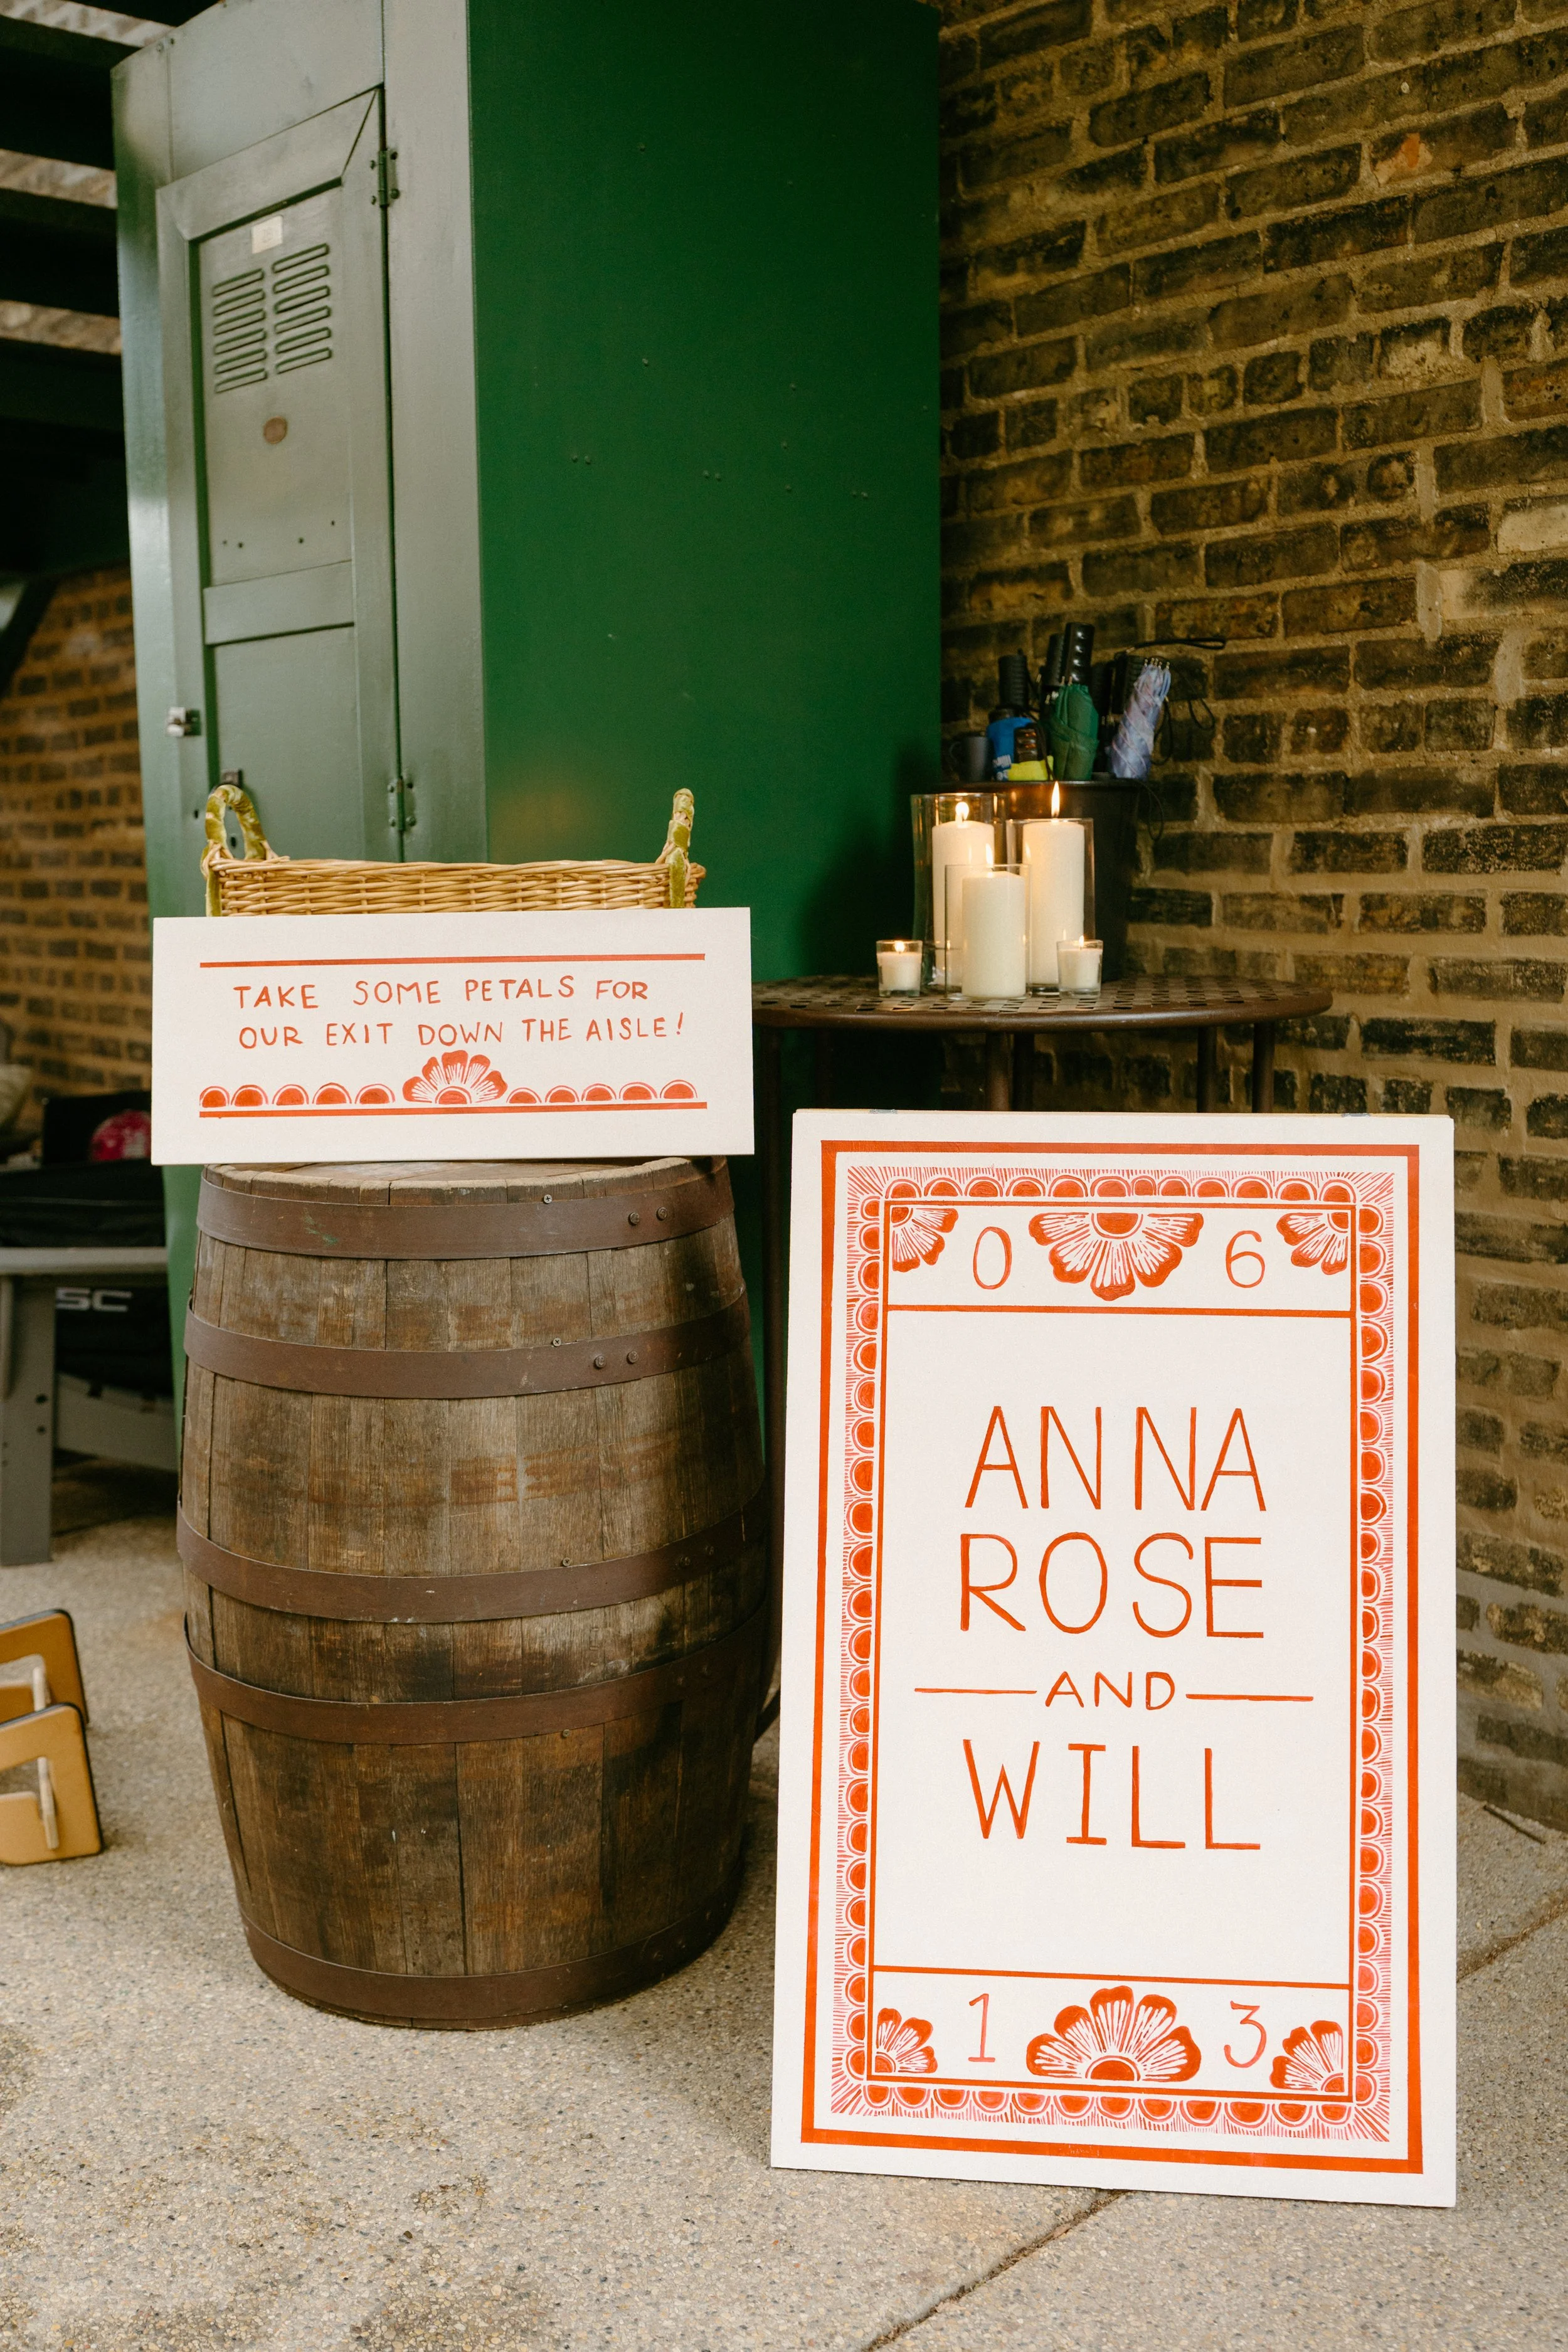 TAKE SOME PETALS FOR
OUR EXIT DOWN THE AISLE!
0 6
ANNA
ROSE
AND
WILL
1 3
SC